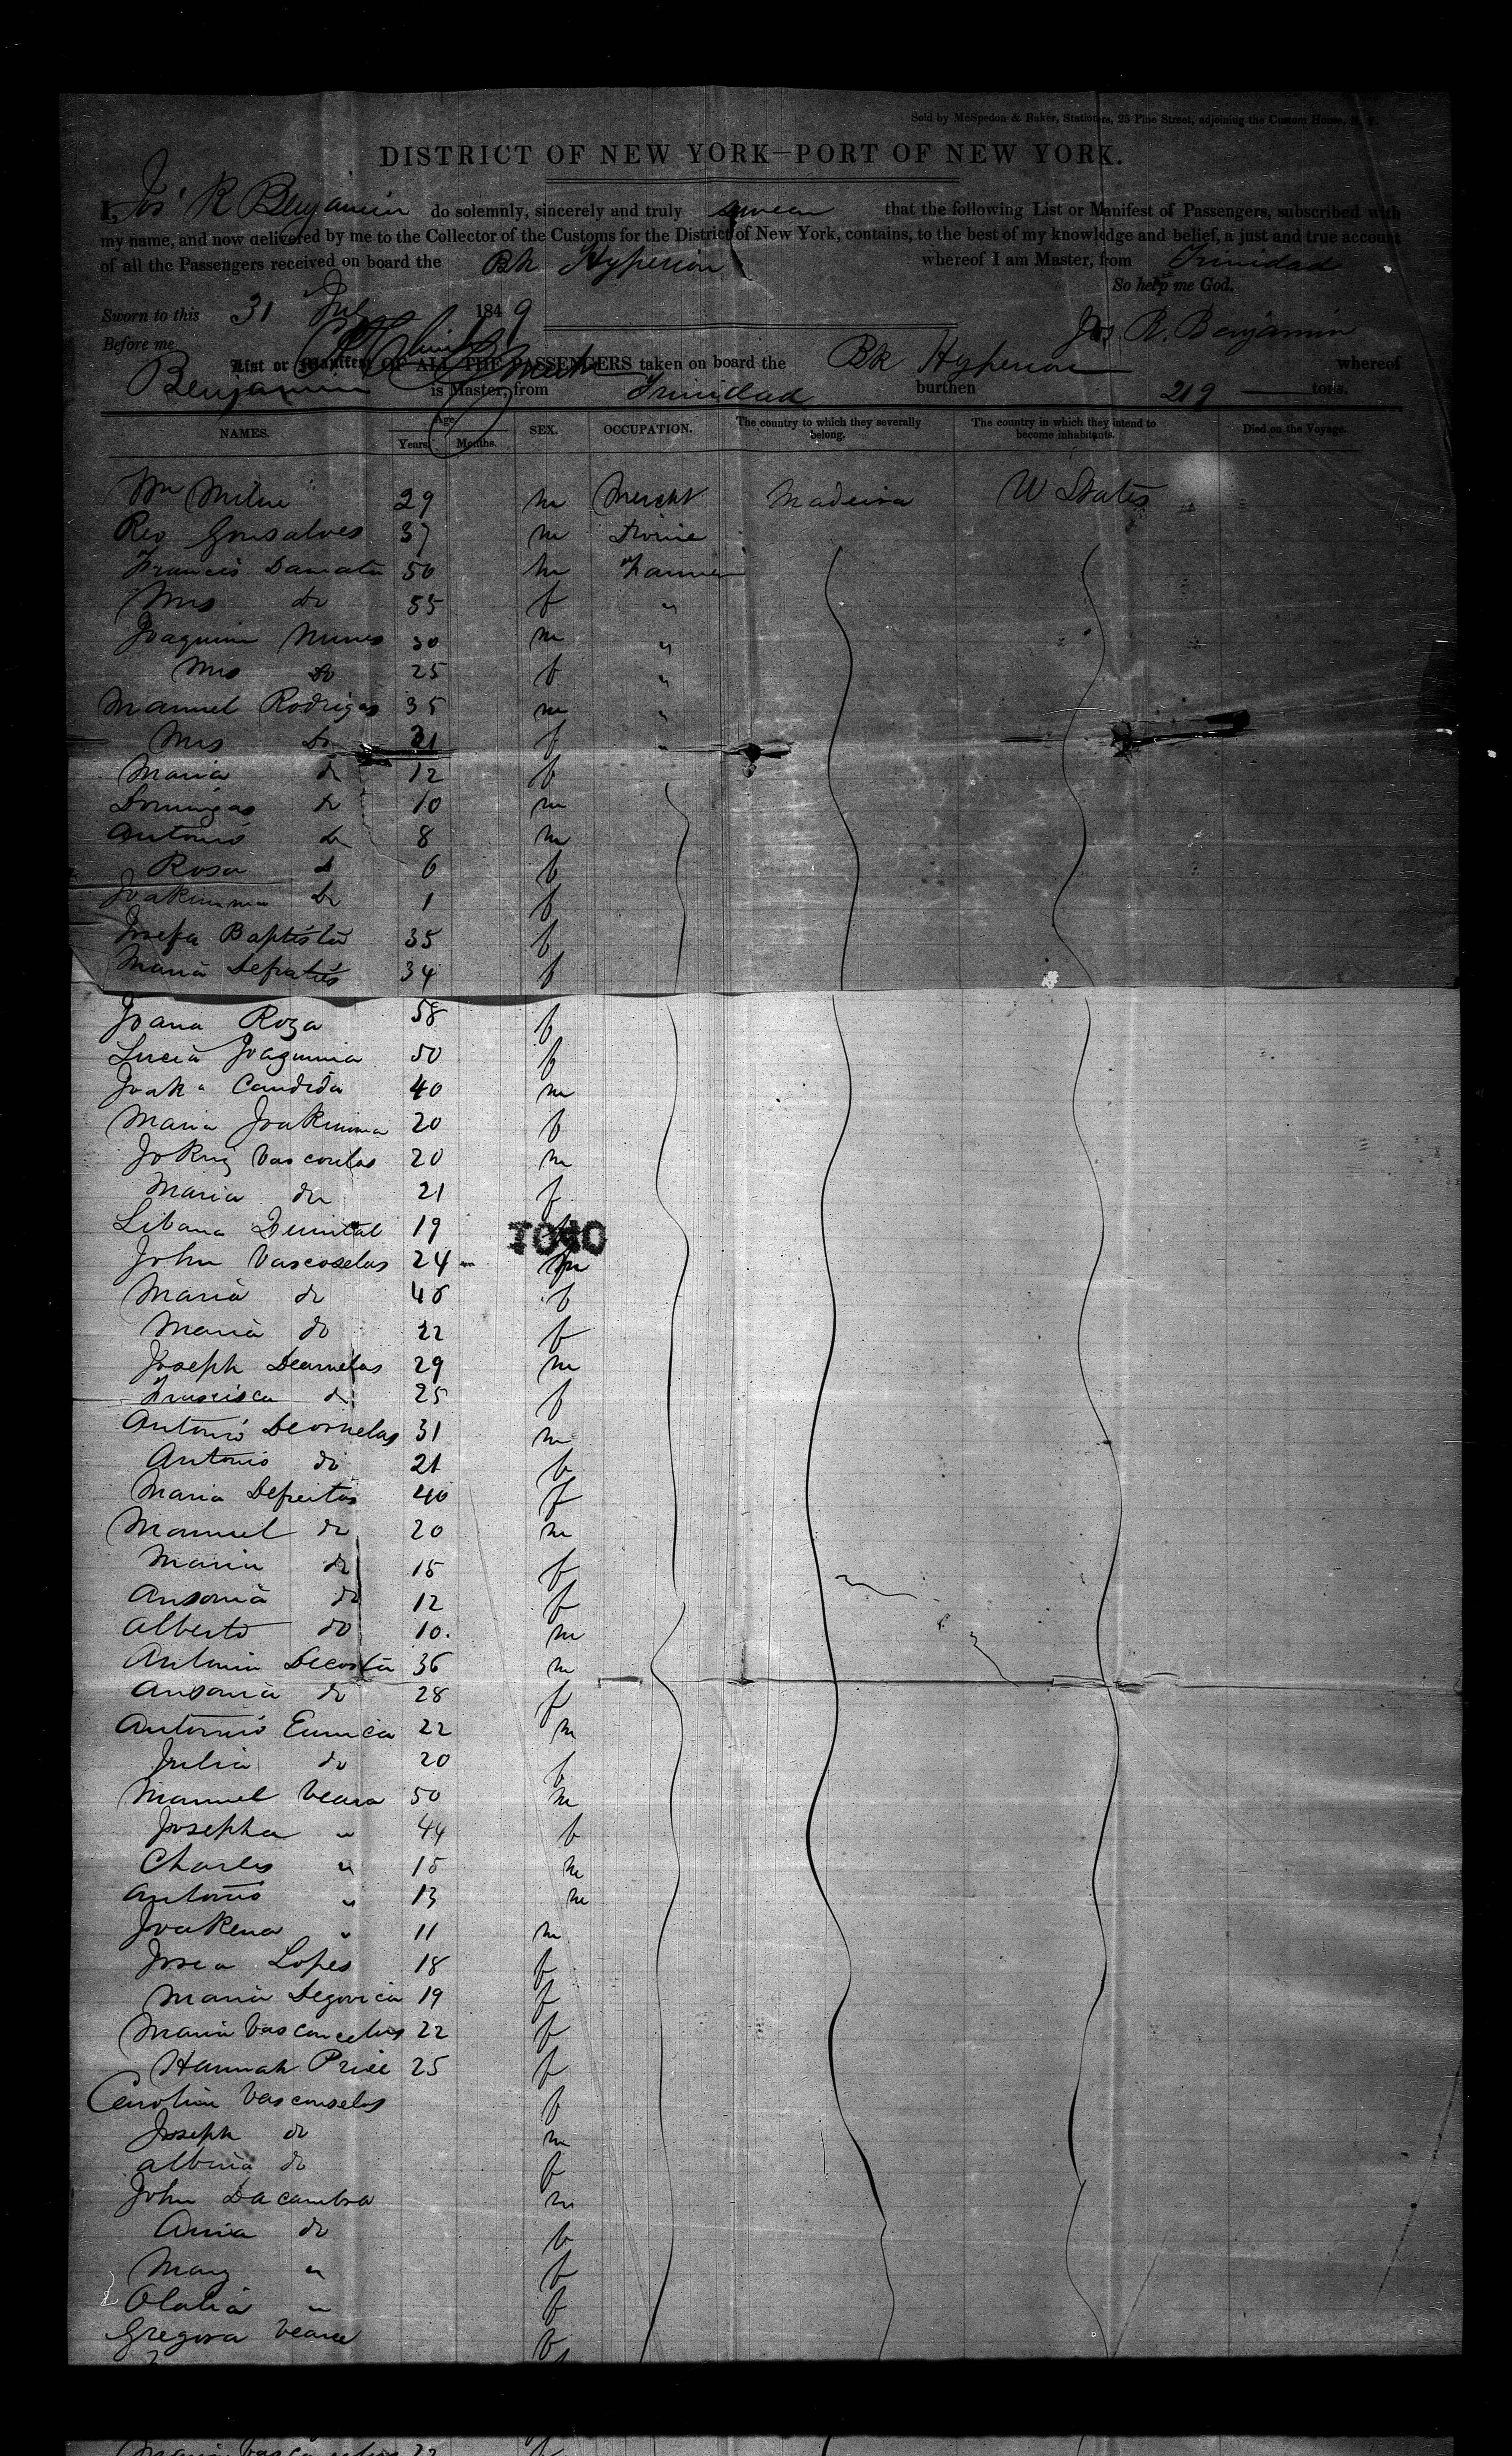 Sold by McSpedon & Baker, Stationers, 25 Pine Street, adjoining the Custom House, N. Y.
DISTRICT OF NEW YORK—PORT OF NEW YORK.
I, Jos R Benjamin do solemnly, sincerely and truly swear that the following List or Manifest of Passengers, subscribed with
my name, and now delivered by me to the Collector of the Customs for the District of New York, contains, to the best of my knowledge and belief, a just and true account
of all the Passengers received on board the Bk Hyperion whereof I am Master, from Trinidad
So help me God.
Sworn to this 31 1849
Jos R. Benjamin
Before me
List or Manifest OF ALL THE PASSENGERS taken on board the Bk Hyperion whereof
Benjamin is Master, from Trinidad burthen 219 tons.
NAMES. Age Years. Months. SEX. OCCUPATION. The country to which they severally belong. The country in which they intend to become inhabitants. Died on the Voyage.
Wm Milne 29 m Mercht Madeira U States
Rev Gonsalves 37 m Divine
Francis Damata 50 m Farmer
Mrs Do 55 f "
Joaquim Nunes 30 m "
Mrs Do 25 f "
Manuel Rodrigas 35 m "
Mrs Do 21 f "
Maria do 12 f
Domingas do 10 m
Antonio do 8 m
Rosa do 6 f
Joakimma Do 1 f
Josefa Baptista 35 f
Maria Defratis 34 f
Joana Roza 58 f
Lucia Joaquinia 50 f
Candida 40 m
Maria Joakimma 20 f
Vasconlas 20 m
Maria do 21 f
Libana Quintal 19
1040
John Vascoselas 24 m
Maria do 48 f
Maria do 22 f
Joseph Dearnelas 29 m
Francisca do 25 f
Antonio Deornelas 31 m
Antonio do 21 f
Maria Defreitas 40 f
Manuel do 20 m
Maria do 15 f
Ansonia do 12 f
Alberto do 10. m
Antonia Decosta 36 m
Ansonia do 28 f
Antonio Eumica 22 m
Julia do 20 f
Manuel Veara 50 m
Josepha " 44 f
Charles " 15 m
Antonio " 13 m
Joakena " 11 m
Josea Lopes 18 f
Maria Degovica 19 f
Maria Vasconcelas 22 f
Hannah Price 25 f
Carolin Vasconselos f
Joseph do m
Albina do f
John Dacambra m
Anna do f
Mary " f
Olalia " f
Gregora Veara f